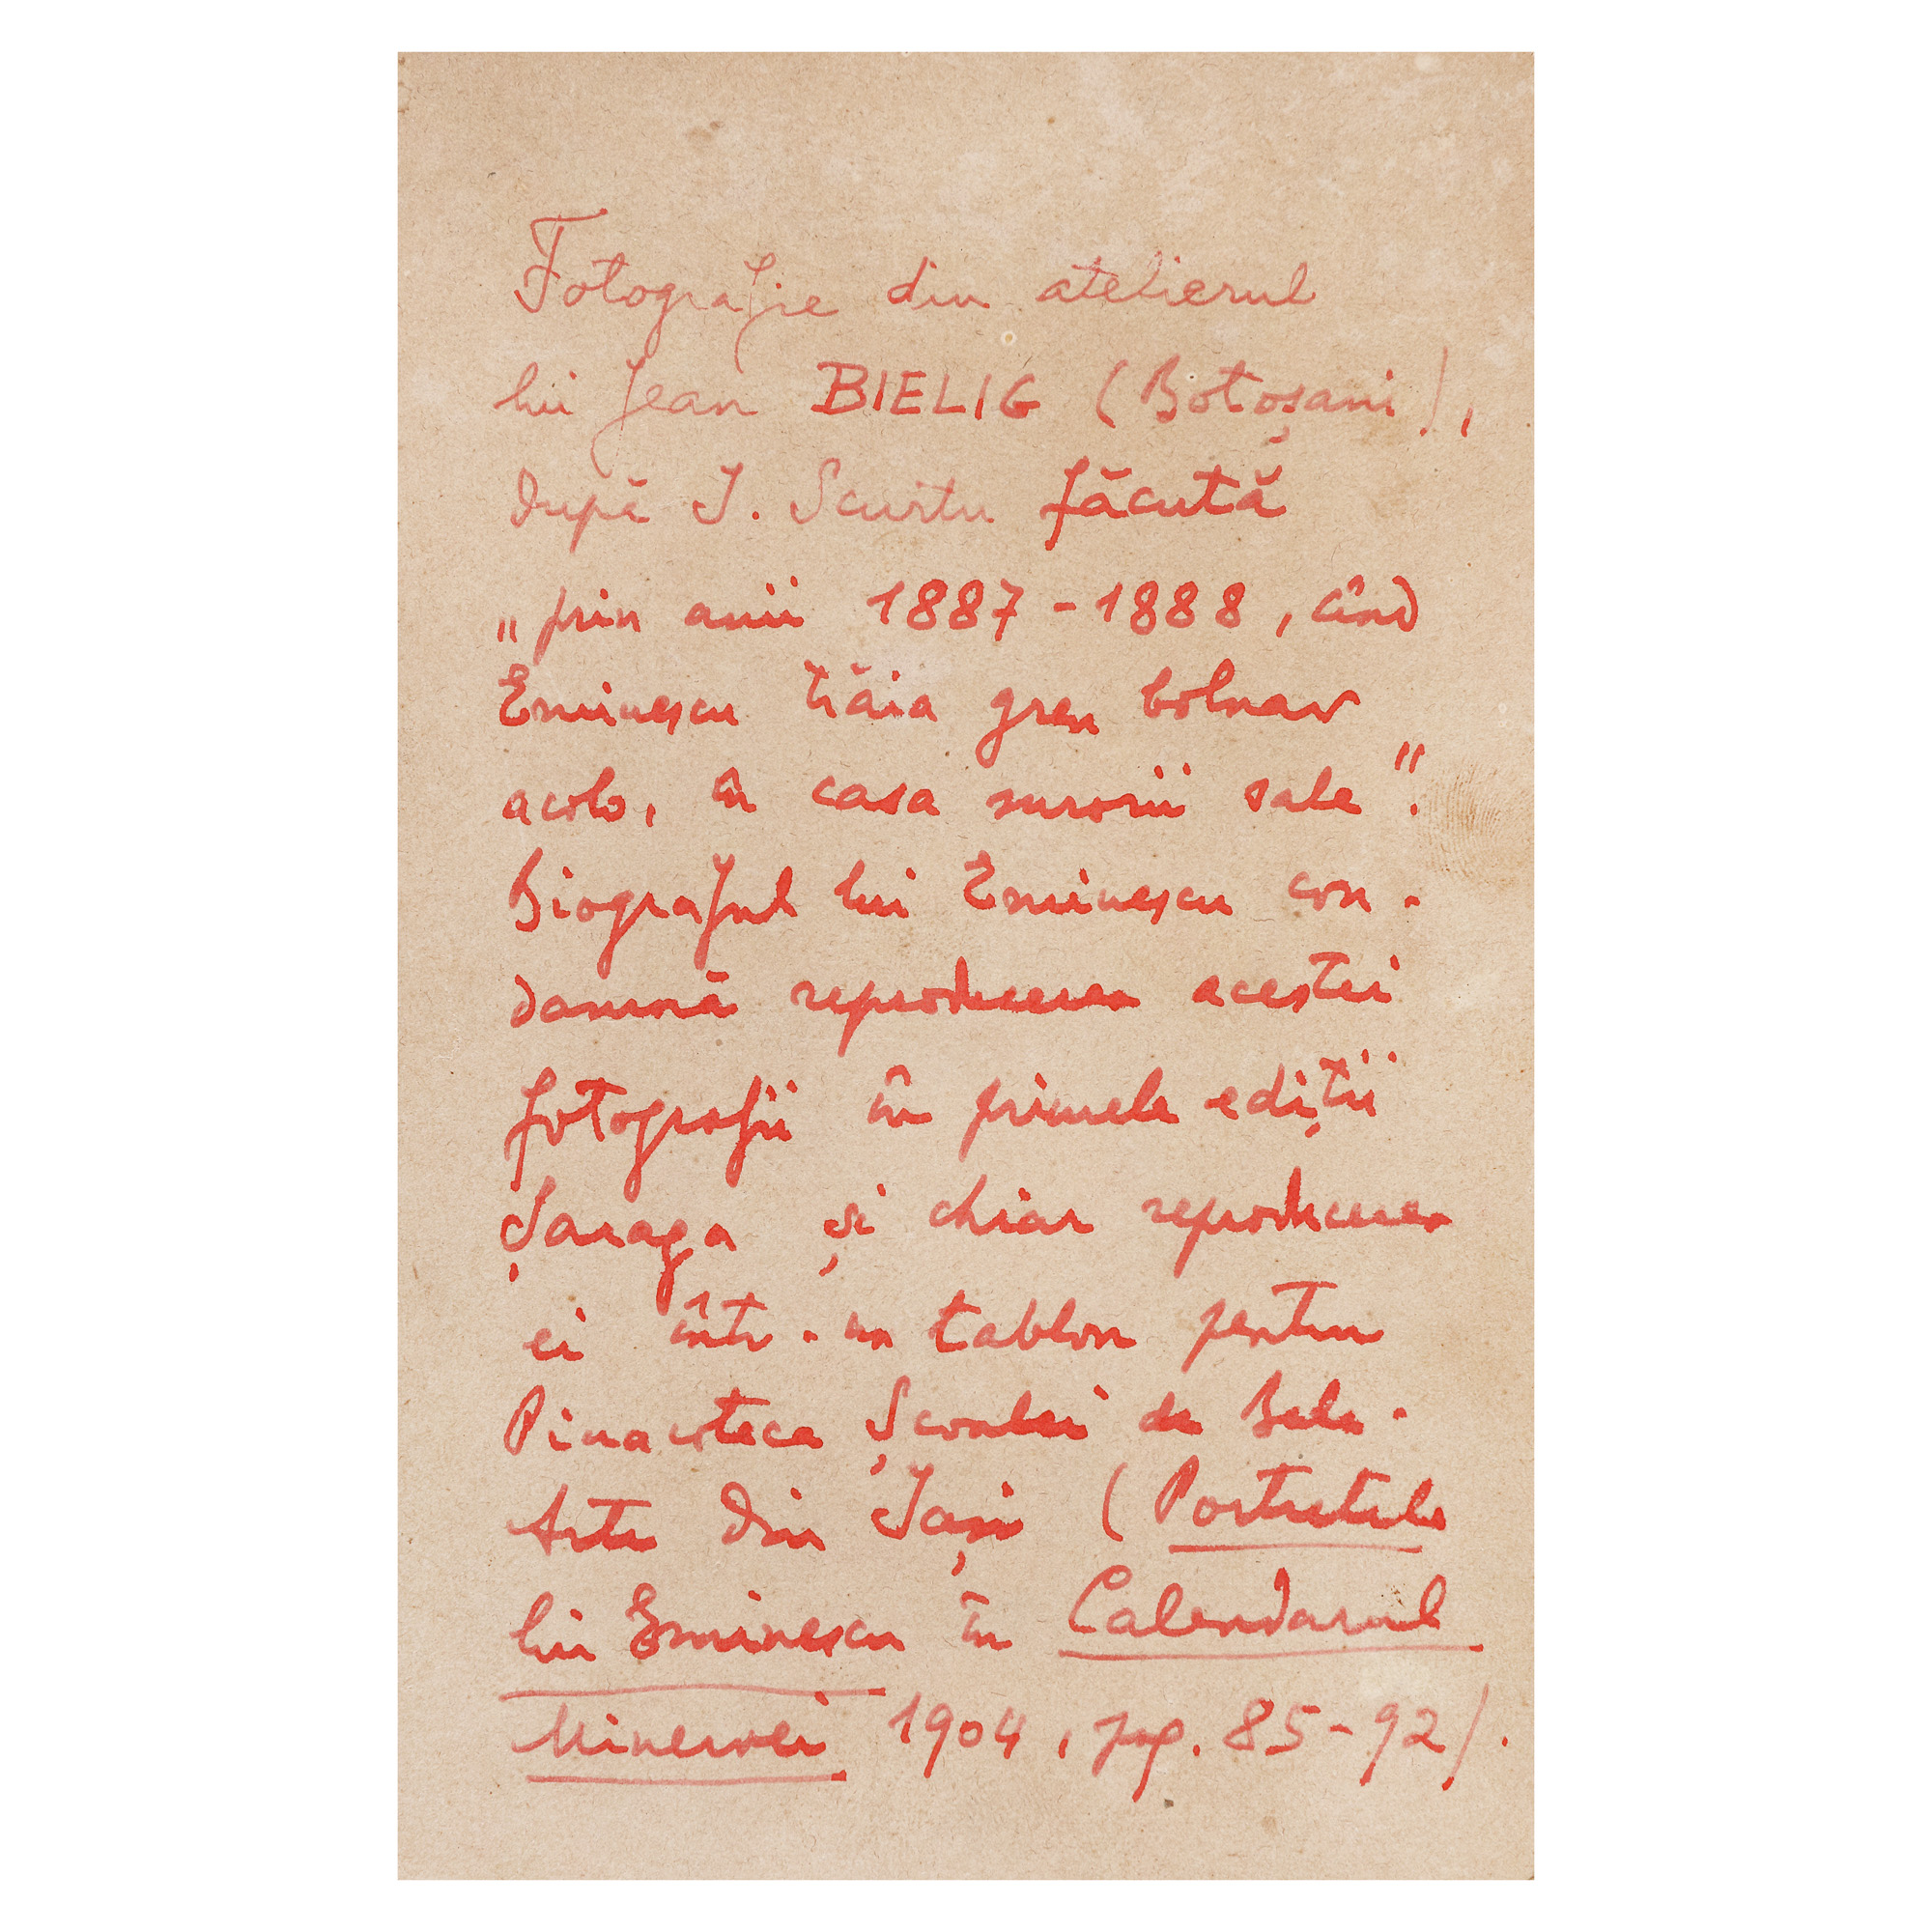 Fotografie din atelierul
lui Jean BIELIG (Botoșani),
după I. Scurtu făcută
„prin anii 1887-1888, când
Eminescu trăia greu bolnav
acolo, în casa surorii sale".
Biograful lui Eminescu con-
damnă reproducerea acestei
fotografii în primele ediții
Șaraga și chiar reproducerea
ei într-un tablou pentru
Pinacoteca Școalei de Bele-
Arte din Iași (Portretele
lui Eminescu în Calendarul
Minervei 1904, pg. 85-92).